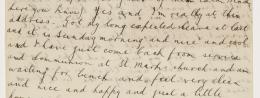 here you know? Yes and I'm really at this
address. Got my long expected leave at last
and it is Sunday morning and nice and cool
and I have just come back from service
and Communion at St Marks church and am
waiting for lunch and feel very clean
and nice and happy and just a little